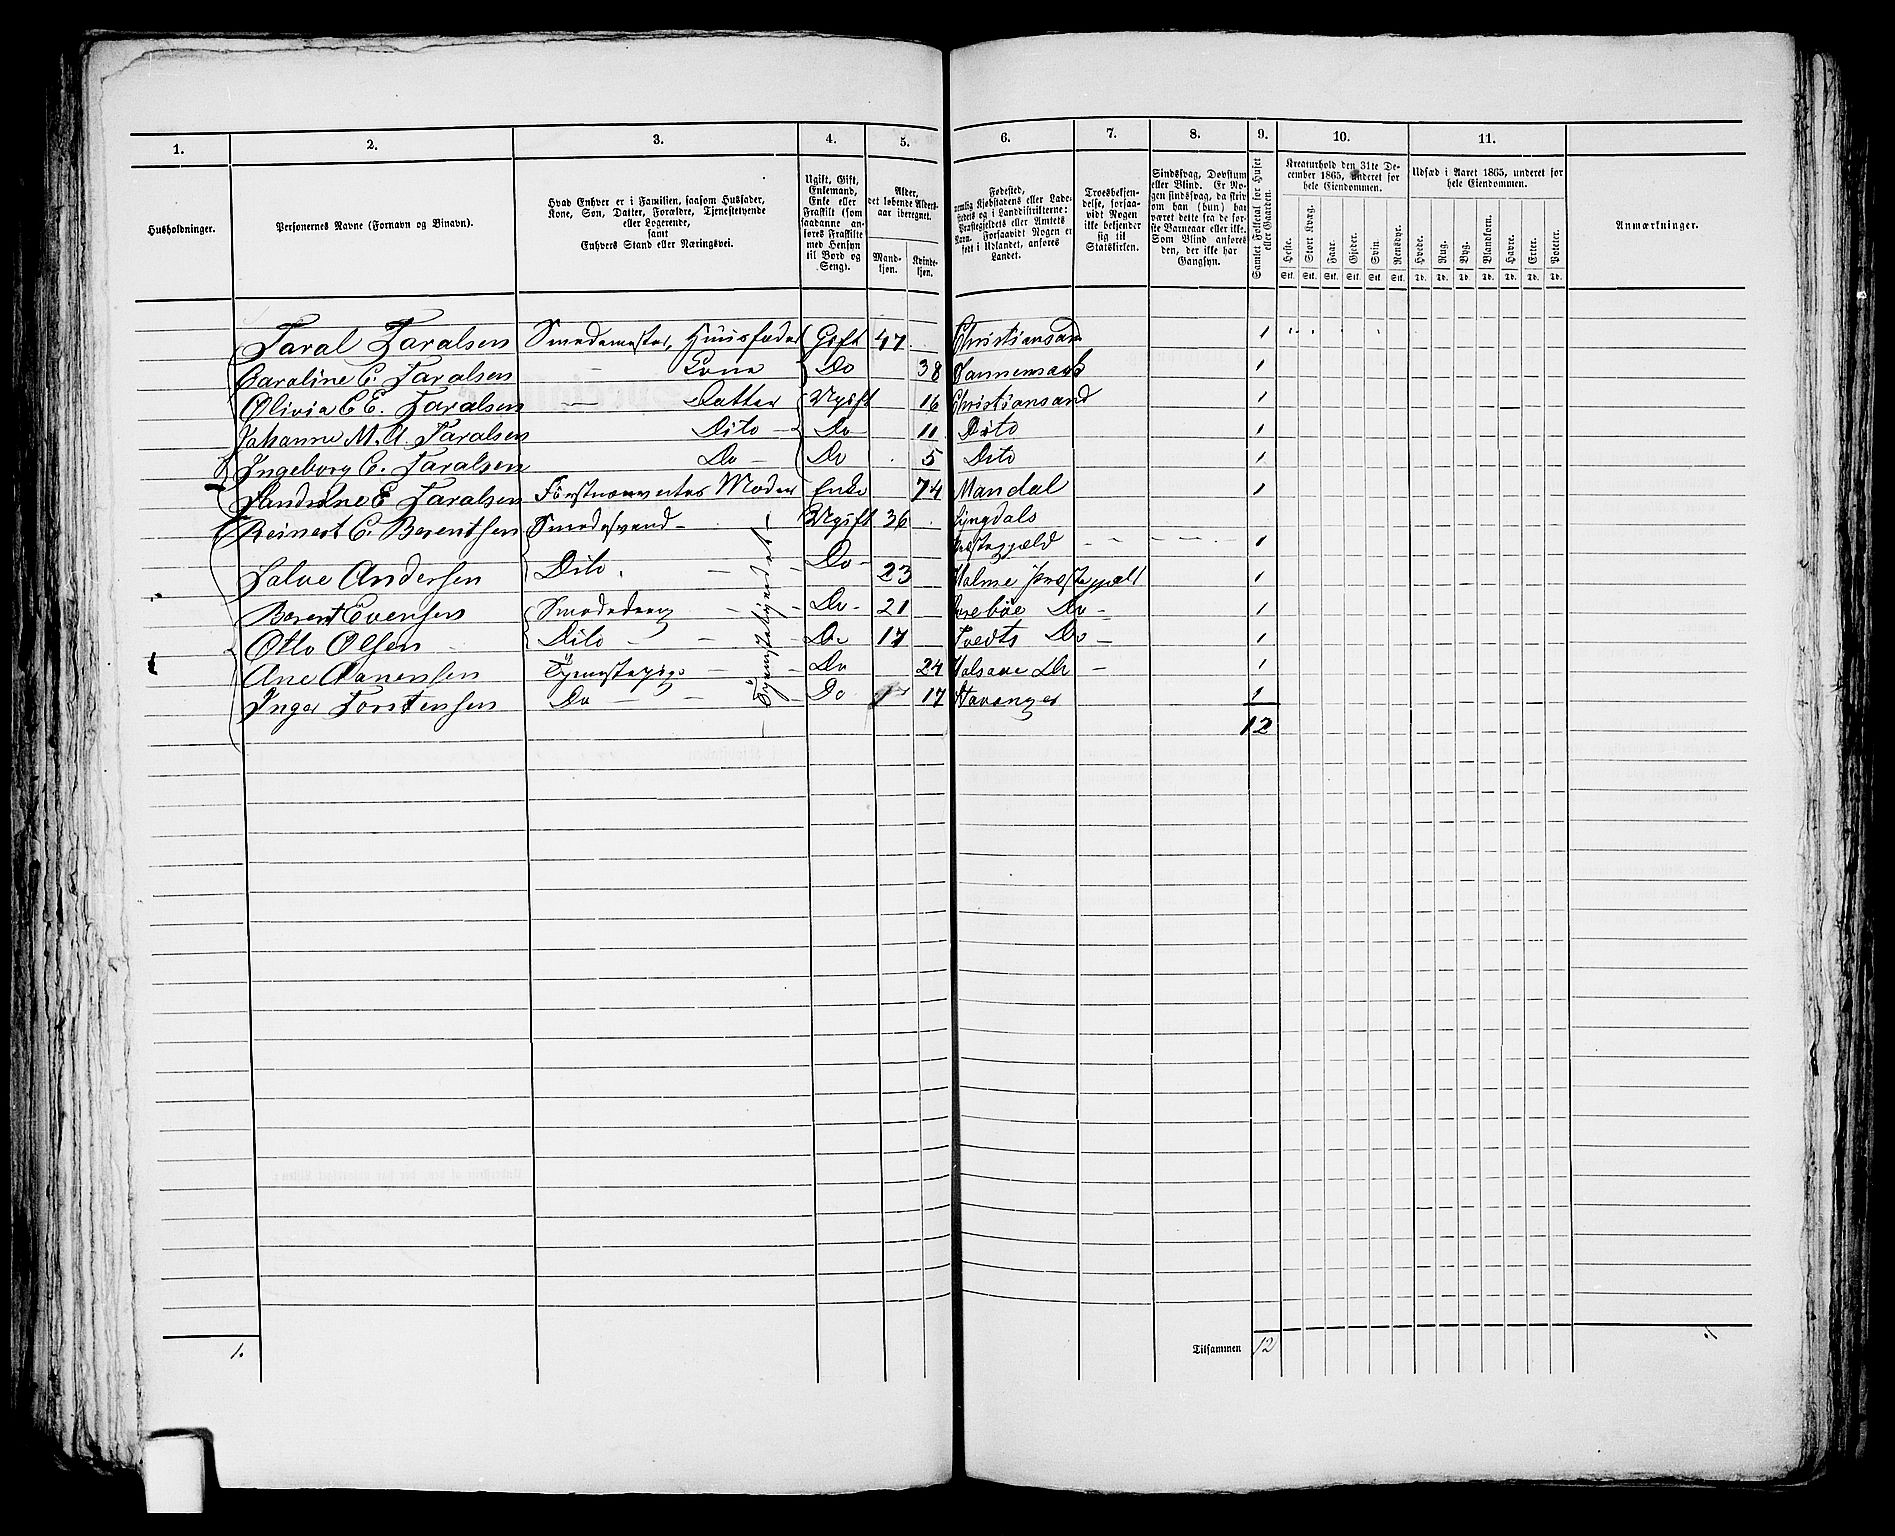 1. 2. 3. 4. 5. 6. 7. 8. 9. 10. 11.
Husholdninger.
Personernes Navne (Fornavn og Binavn).
Hvad Enhver er i Familien, saasom Husfader, Kone, Søn, Datter, Forældre, Tjenestetyende eller Logerende, samt Enhvers Stand eller Næringsvei.
Ugift, Gift, Enkemand, Enke eller Fraskilt (som saadanne anføres Fraskilte med Hensyn til Bord og Seng).
Alder, det løbende Aldersaar iberegnet.
Mandkjøn. Kvindekjøn.
Fødested, nemlig Kjøbstadens eller Ladestedets og i Landdistrikterne: Præstegjeldets eller Amtets Navn. Forsaavidt Nogen er født i Udlandet, anføres Landet.
Troesbekjendelse, forsaavidt Nogen ikke bekjender sig til Statskirken.
Sindssvag, Døvstum eller Blind. Er Nogen sindssvag, da skriv om han (hun) har været dette fra de første Barneaar eller ik. Som Blind anføres den, der ikke har Gangsyn.
Samlet Folketal for Huset eller Gaarden.
Kreaturhold den 31te December 1865, underet for hele Eiendommen.
Heste. Stort Kvæg. Faar. Gjeder. Svin. Rensdyr.
Stk. Stk. Stk. Stk. Stk. Stk.
Udsæd i Aaret 1865, underet for hele Eiendommen.
Hvede. Rug. Byg. Blandkorn. Havre. Erter. Poteter.
Td. Td. Td. Td. Td. Td. Td.
Anmærkninger.
Taral Taralsen Smedemester, Huusfader Gift 47 Christiansand 1
Caroline C. Taralsen – Kone Do 38 Dannemark 1
Olivia C E. Taralsen – Datter Ugift 16 Christiansand 1
Johanne M. A. Taralsen Dito – Do 11 Dito 1
Ingeborg C. Taralsen Do – Do 5 Dito 1
Sandrine E Taralsen Førstnævntes Moder Enke 74 Mandal 1
Reinert C. Berentsen Smedesvend – Ugift 36 Lyngdals Præstegjæld 1
Salve Andersen Dito Do – 23 Holme Præstegjæld 1
Berent Evensen Smededreng Do – 21 Do – 1
Otto Olsen Dito – Do 17 Tvedts Do – 1
Ane Aanensen Tjenestepige Do 24 Halsaae Do – 1
Inger Torstensen Do – Do 17 Stavanger 1
Tjenestetyende
12
1.
Tilsammen 12